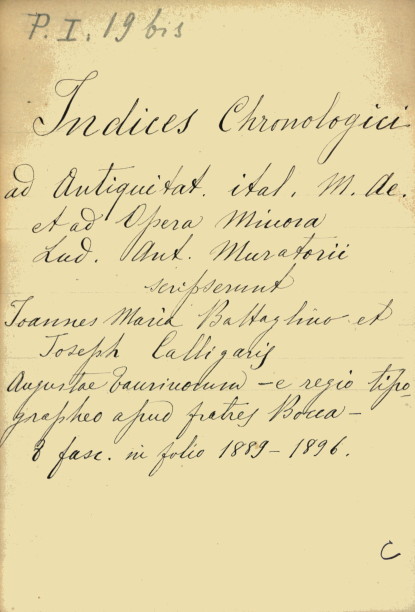 P. I. 19 bis
Indices Chronologici
ad Antiquitat. ital. M. Ae.
et ad Opera Minora
Lud. Ant. Muratorii
scripserunt
Ioannes Maria Battaglino et
Joseph Calligaris
Augustae Taurinorum – e regio tipo-
grapheo apud fratres Bocca –
8 fasc. in folio 1889 – 1896.
C